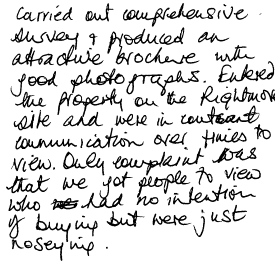 Carried out comprehensive
survey & produced an
attractive brochure with
good photographs. Entered
the property on the Rightmove
site and were in constant
communication over times to
view. Only complaint was
that we got people to view
who had no intention
of buying but were just
noseying.